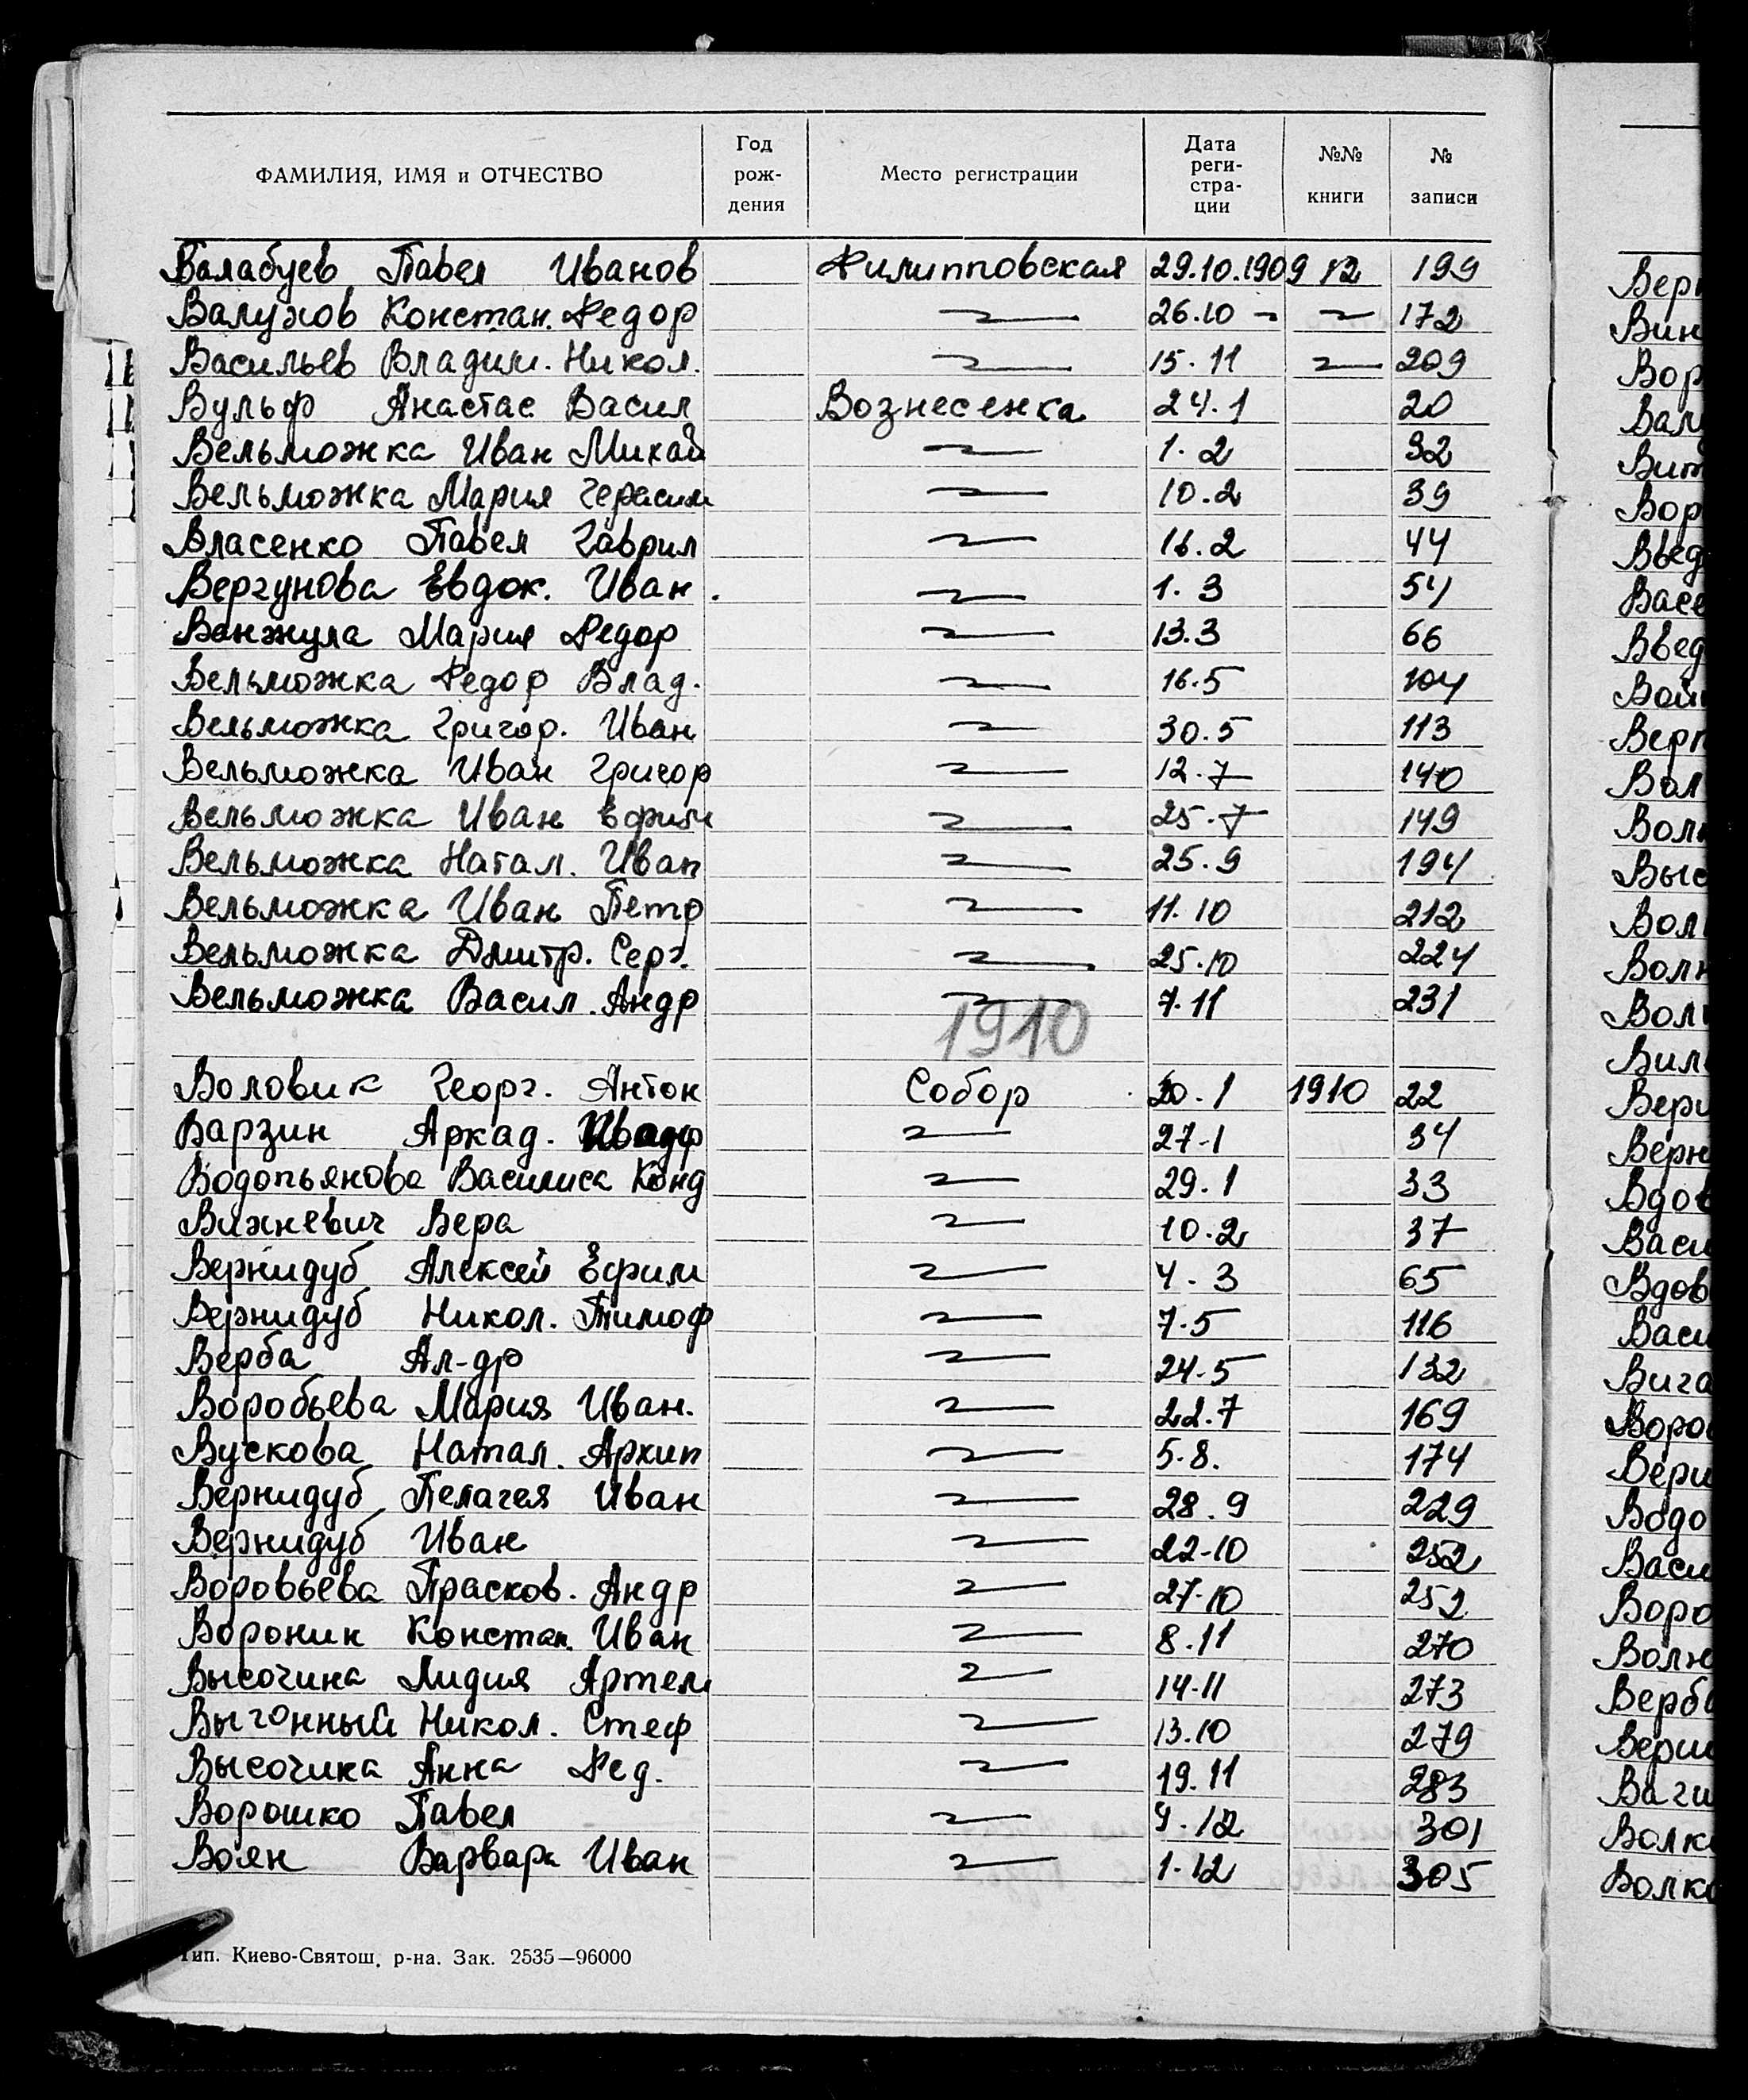 ФАМИЛИЯ, ИМЯ и ОТЧЕСТВО Год рождения Место регистрации Дата регистрации №№ книги № записи
Валабуев Павел Иванов Филипповская 29.10.1909 12 199
Валухов Констан. Федор 26.10 172
Васильев Владим. Никол. 15.11 209
Вульф Анастас Васил Вознесенка 24.1 20
Вельможка Иван Михай 1.2 32
Вельможка Мария Герасим 10.2 39
Власенко Павел Гаврил 16.2 44
Вергунова Евдок. Иван. 1.3 54
Ванжула Мария Федор 13.3 66
Вельможка Федор Влад. 16.5 104
Вельможка Григор. Иван 30.5 113
Вельможка Иван Григор 12.7 140
Вельможка Иван Ефим 25.7 149
Вельможка Натал. Иван 25.9 194
Вельможка Иван Петр 11.10 212
Вельможка Дмитр. Серг. 25.10 224
Вельможка Васил. Андр 7.11 231
1910
Воловик Георг. Антон Собор 20.1 1910 22
Варзин Аркад. 27-1 34
Водопьянова Василиса Конд 29.1 33
Вижневич Вера 10.2 37
Вернидуб Алексей Ефим 4-3 65
Вернидуб Никол. Тимоф 7.5 116
Верба Ал-др 24-5 132
Воробьева Мария Иван. 22.7 169
Вускова Натал. Архип 5.8. 174
Вернидуб Пелагея Иван 28.9 229
Вернидуб Иван 22-10 252
Воровьева Прасков. Андр 27-10 252
Воронин Констан. Иван 8.11 270
Высочина Лидия Артем 14-11 273
Выгонный Никол. Стеф 13.10 279
Высочина Анна Фед. 19.11 283
Ворошко Павел 4.12 301
Воян Варвара Иван 1-12 305
Тип. Киево-Святош. р-на. Зак. 2535—96000